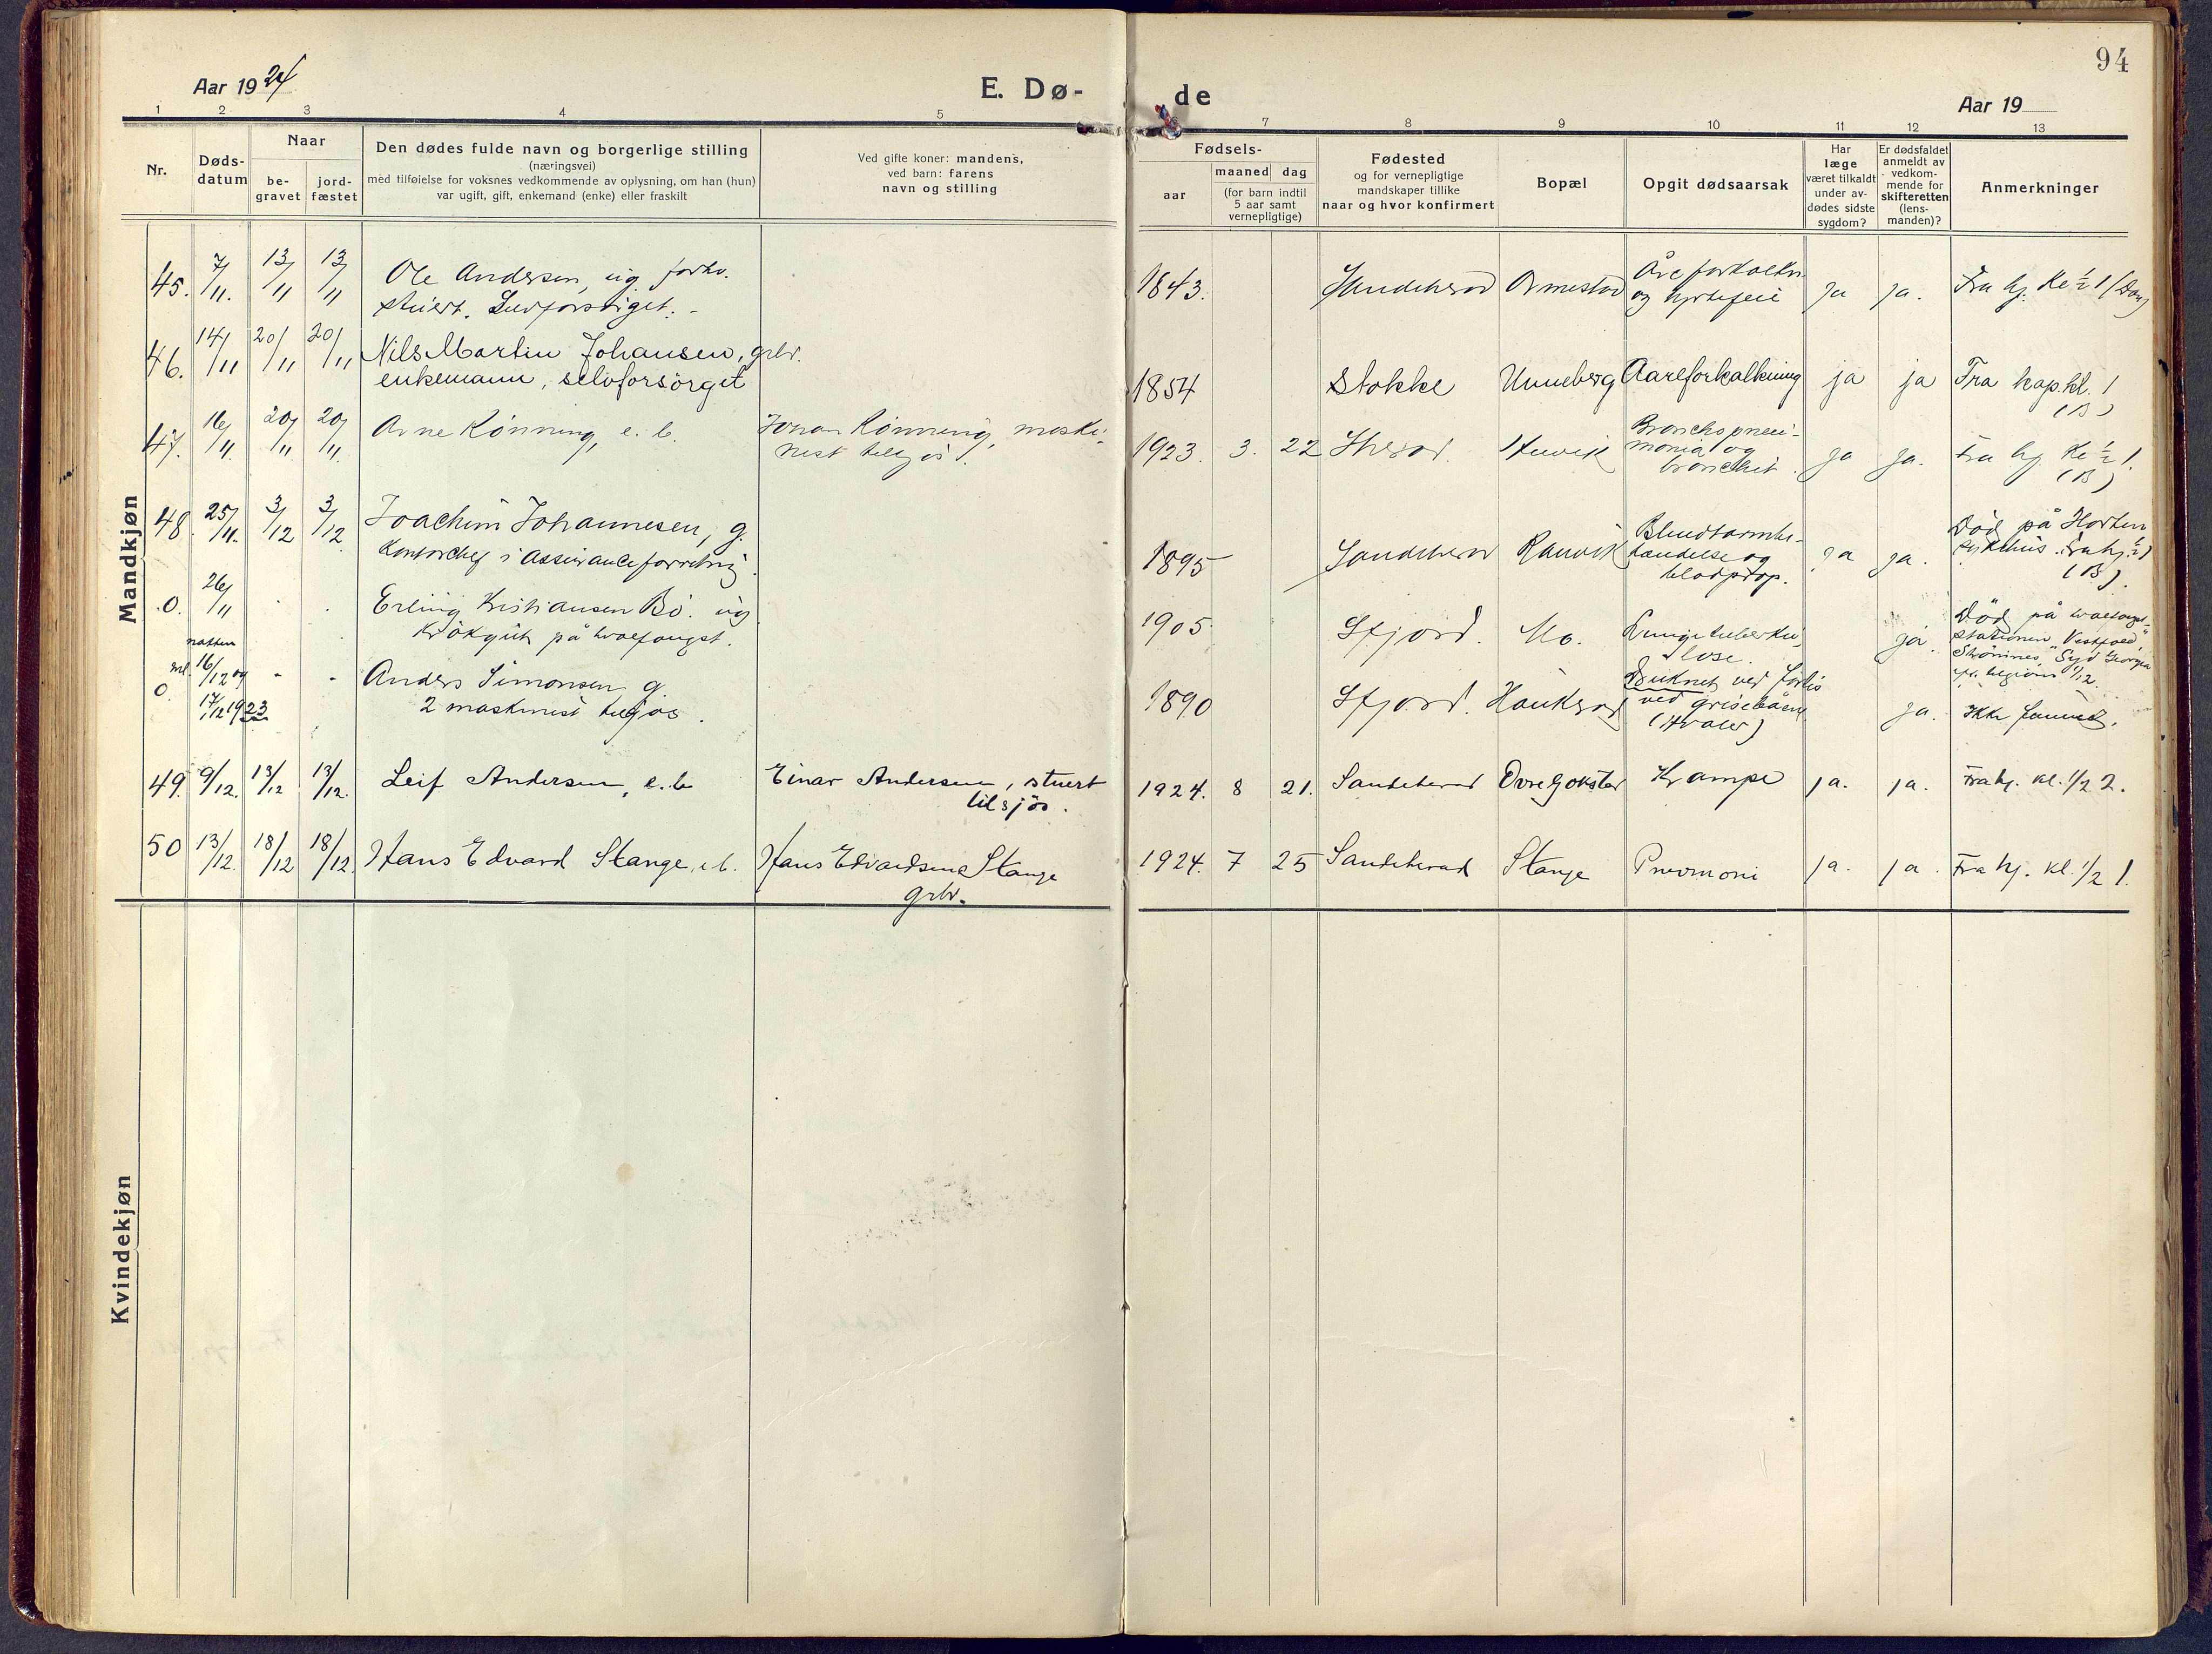 94
Aar 1924
E. Dø-
de
Aar 19
1 2 3 4 5 7 8 9 10 11 12 13
Nr.
Døds-
datum
Naar
be-
gravet
jord-
fæstet
Den dødes fulde navn og borgerlige stilling
(næringsvei)
med tilføielse for voksnes vedkommende av oplysning, om han (hun)
var ugift, gift, enkemand (enke) eller fraskilt
Ved gifte koner: mandens,
ved barn: farens
navn og stilling
Fødsels-
aar
maaned dag
(for barn indtil
5 aar samt
vernepligtige)
Fødested
og for vernepligtige
mandskaper tillike
naar og hvor konfirmert
Bopæl
Opgit dødsaarsak
Har
læge
været tilkaldt
under av-
dødes sidste
sygdom?
Er dødsfaldet
anmeldt av
vedkom-
mende for
skifteretten
(lens-
manden)?
Anmerkninger
Mandkjøn
45. 7/11. 13/11 13/11 Ole Andersen, ug. forhv.
stuert. Selvforsörget. -
1843. Sandeherad Ormestad Åreforkalkn.
og hjertefeil ja ja. Fra hj. kl ½ 1
46. 14/11 20/11 20/11 Nils Martin Johansen, grbr.
enkemann, selvforsörget
1854 Stokke Unneberg Aareforkalkning ja ja Fra kap. kl. 1
(B)
47. 16/11. 20/11 20/11. Arne Rönning, e. b. Johan Rönning, maski-
nist tilsjös.
1923. 3. 22 Sherad. Huvik Bronchopneu-
monia og
bronchit. ja ja. Fra hj. kl ½ 1.
(B)
48. 25/11. 3/12 3/12. Joachim Johannesen, g.
Kontorchef i Assuranceforretning.
1895 Sandeherad Ranvik Blindtarmbe-
tændelse og
blodprop. ja ja. Död på Horten
sykehus. Fra hj. ½ 1
(B).
0. 26/11 Erling Kristiansen Bö. ug
Krokgut på hvalfangst.
1905 Sfjord. Mo. Lungetuberku-
lose. ja. Död på hvalfangst-
stationen "Vestfold",
Strömnes, Syd Georgia
0. natten
ml. 16/12 og
17/12 1923 - - Anders Simonsen, g.
2 maskinist tilsjös.
1890 Sfjord. Haukerød Druknet ved forlis
ved Grisebåene
(Hvaler) ja. Ikke funnet.
49. 9/12. 13/12 13/12. Leif Andersen, e. b Einar Andersen, stuert
til sjös.
1924. 8 21. Sandeherad Övre Gokstad Krampe ja. ja. Fra hj. kl. 1/2 2.
50 13/12. 18/12 18/12. Hans Edvard Stange, e b. Hans Edvardsen Stange
grbr.
1924. 7 25 Sandeherad Stange Pnevmoni ja. ja. Fra hj. kl. 1/2 1.
Kvindekjøn